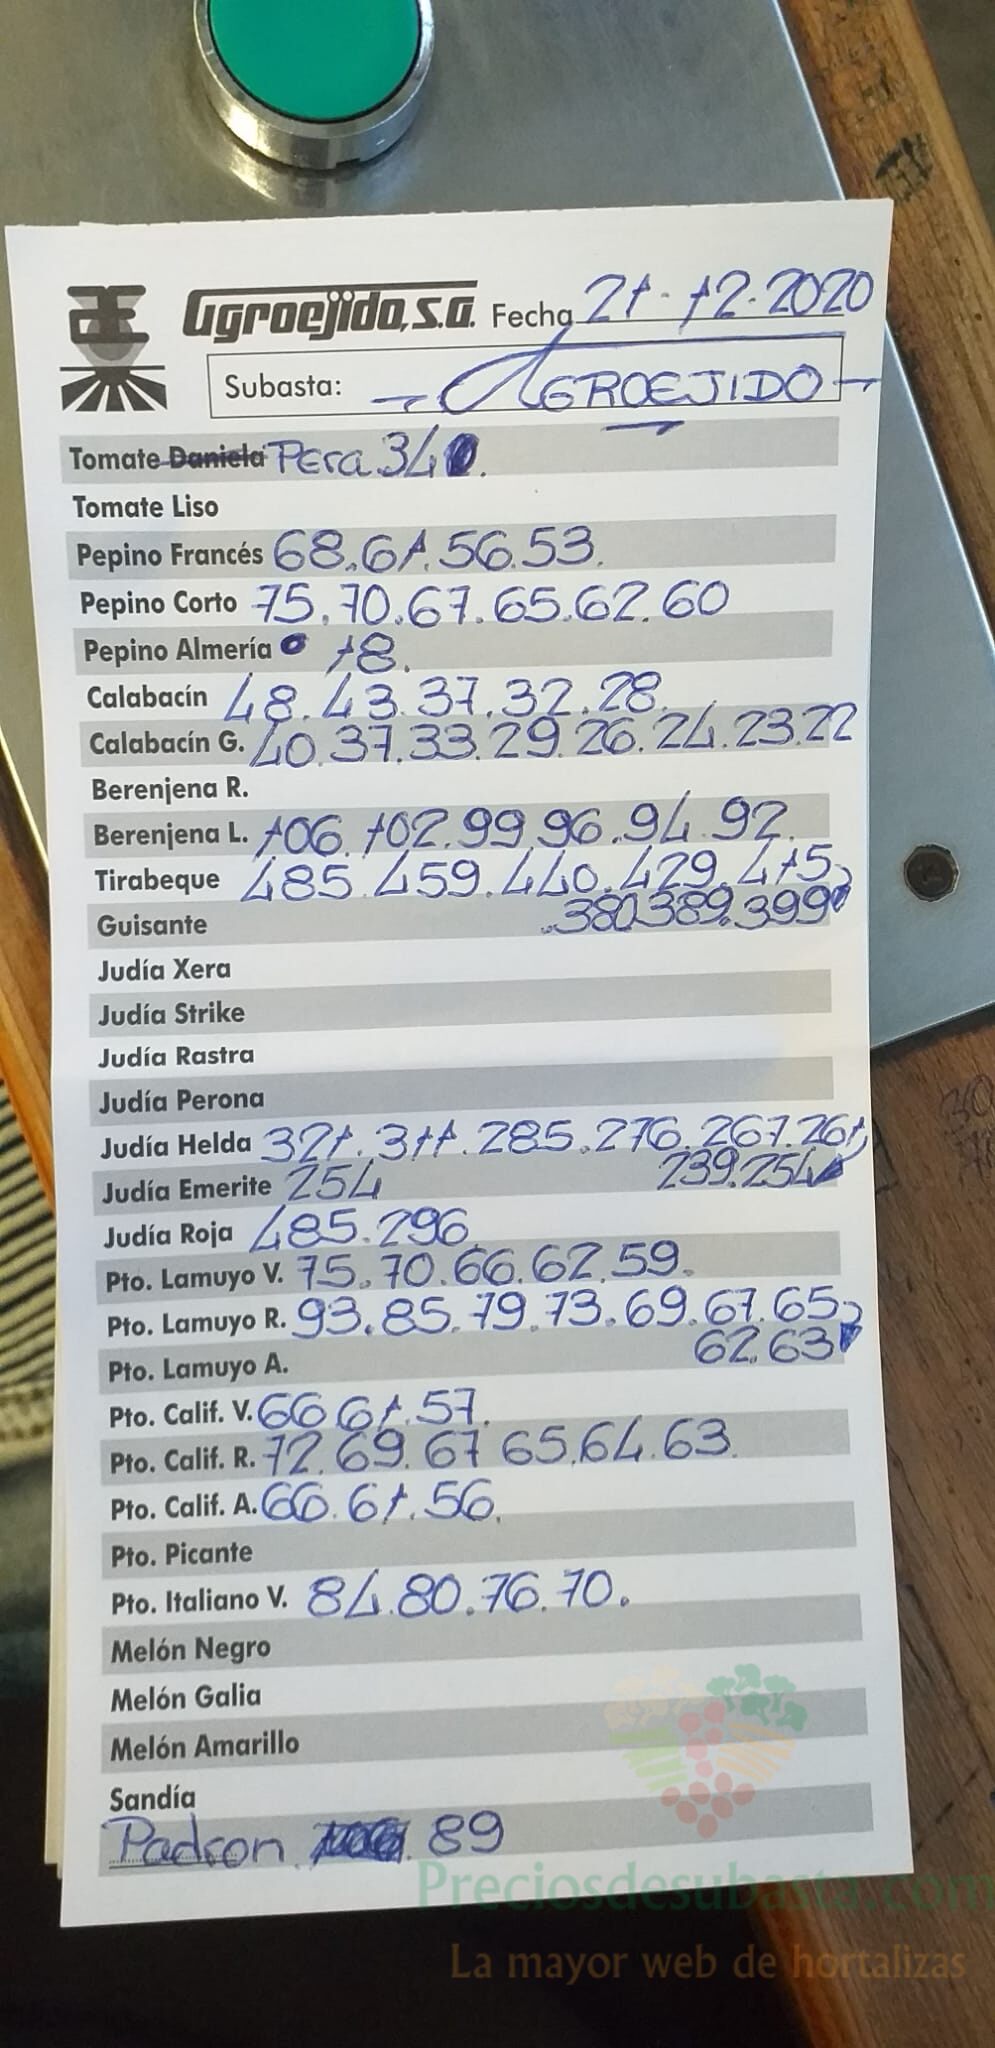 Agroejido, S.A. Fecha 21-12-2020
Subasta: - AGROEJIDO -
Tomate Daniela Pera 340.
Tomate Liso
Pepino Francés 68.61.56.53.
Pepino Corto 75.70.67.65.62.60
Pepino Almería 18.
Calabacín 48.43.37.32.28.
Calabacín G. 40.37.33.29.26.24.23.22
Berenjena R.
Berenjena L. 106.102.99.96.94.92.
Tirabeque 485.459.440.429.415
.380.389.399
Guisante
Judía Xera
Judía Strike
Judía Rastra
Judía Perona
Judía Helda 321.311.285.276.267.261
239.254
Judía Emerite 254
Judía Roja 485.296
Pto. Lamuyo V. 75.70.66.62.59.
Pto. Lamuyo R. 93.85.79.73.69.67.65
62.63
Pto. Lamuyo A.
Pto. Calif. V. 66 61.57.
Pto. Calif. R. 72.69.67 65.64.63.
Pto. Calif. A. 66.61.56.
Pto. Picante
Pto. Italiano V. 84.80.76.70.
Melón Negro
Melón Galia
Melón Amarillo
Sandía
Padron 89
Preciosdesubasta.com
La mayor web de hortalizas